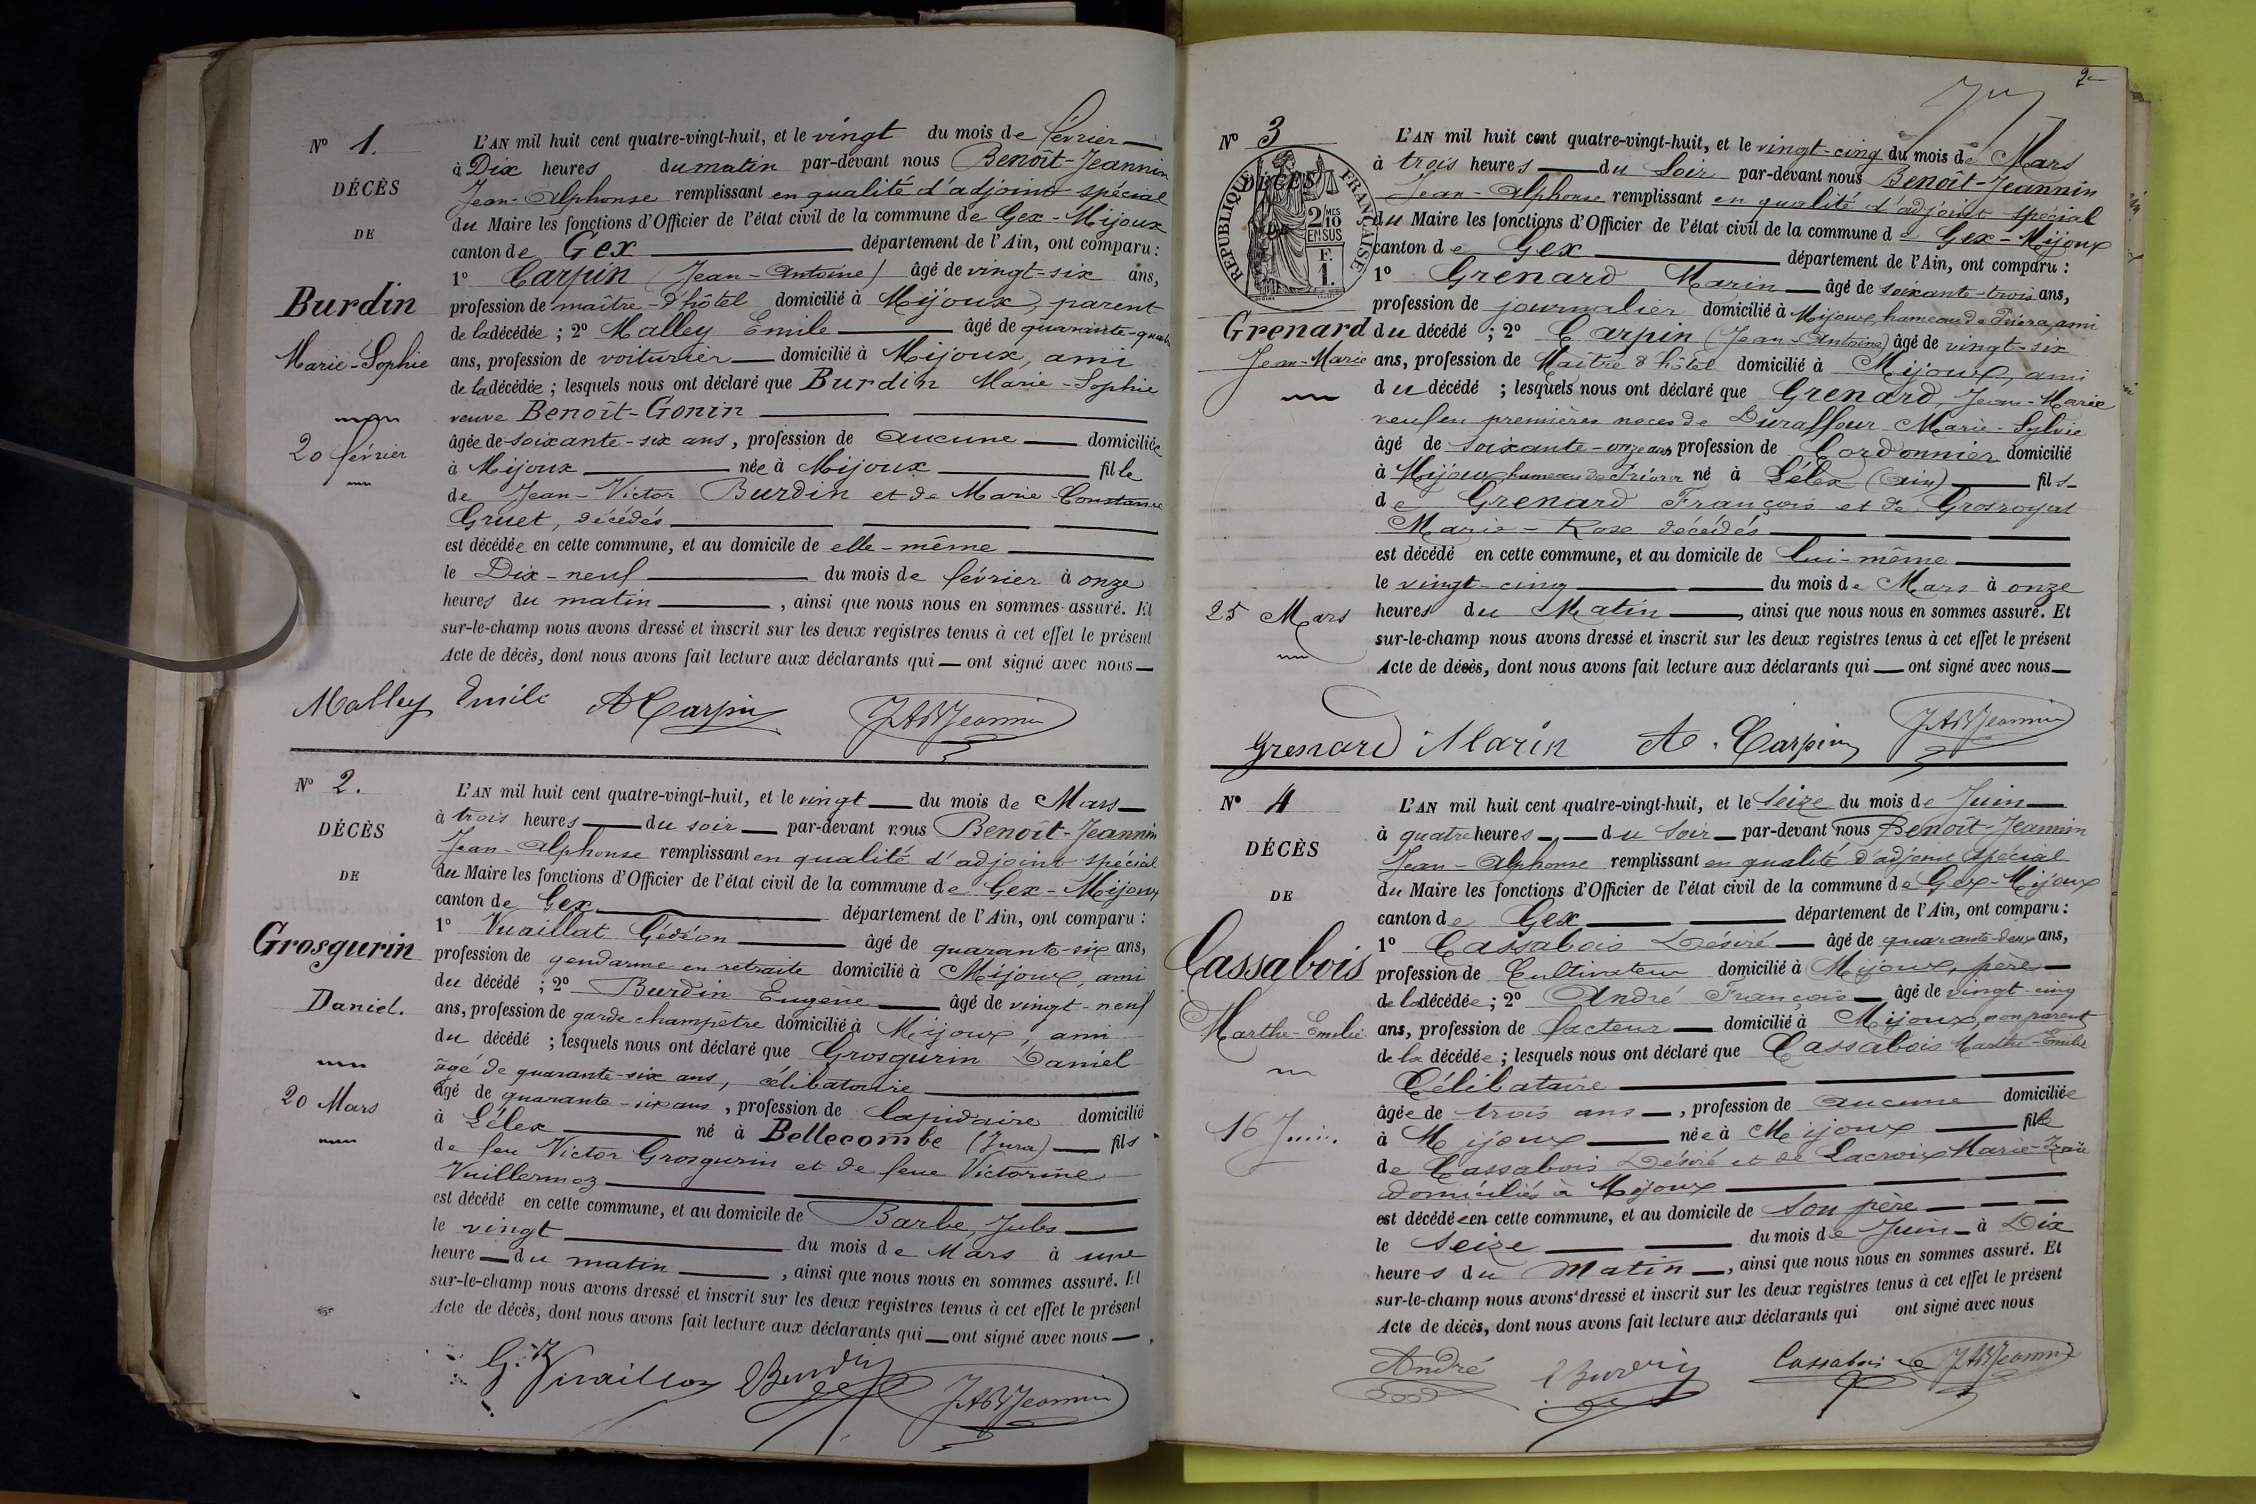 N° 1.
DÉCÈS
DE
Burdin
Marie-Sophie
20 février
L'AN mil huit cent quatre-vingt-huit, et le vingt du mois de février
à Dix heures du matin par-devant nous Benoît-Jeannin
Jean-Alphonse remplissant en qualité d'adjoint spécial
du Maire les fonctions d'Officier de l'état civil de la commune de Gex-Mijoux
canton de Gex département de l'Ain, ont comparu :
1° Carpin (Jean-Antoine) âgé de vingt-six ans,
profession de maître-d'hôtel domicilié à Mijoux, parent
de la décédée ; 2° Malley Emile âgé de quarante-quatre
ans, profession de voiturier domicilié à Mijoux, ami
de la décédée ; lesquels nous ont déclaré que Burdin Marie-Sophie
veuve Benoît-Gonin
âgée de soixante-six ans, profession de aucune domiciliée
à Mijoux née à Mijoux fille
de Jean-Victor Burdin et de Marie Constance
Gruet, décédés
est décédée en cette commune, et au domicile de elle-même
le Dix-neuf du mois de février à onze
heures du matin, ainsi que nous nous en sommes assuré. Et
sur-le-champ nous avons dressé et inscrit sur les deux registres tenus à cet effet le présent
Acte de décès, dont nous avons fait lecture aux déclarants qui ont signé avec nous
Malley Emile A Carpin JABJeannin
N° 2.
DÉCÈS
DE
Grosgurin
Daniel.
20 Mars
L'AN mil huit cent quatre-vingt-huit, et le vingt du mois de Mars
à trois heures du soir par-devant nous Benoît-Jeannin
Jean-Alphonse remplissant en qualité d'adjoint spécial
du Maire les fonctions d'Officier de l'état civil de la commune de Gex-Mijoux
canton de Gex département de l'Ain, ont comparu :
1° Vuaillat Gédéon âgé de quarante-six ans,
profession de gendarme en retraite domicilié à Mijoux, ami
du décédé ; 2° Burdin Eugène âgé de vingt-neuf
ans, profession de garde champêtre domicilié à Mijoux, ami
du décédé ; lesquels nous ont déclaré que Grosgurin Daniel
âgé de quarante-six ans, célibataire
âgé de quarante-six ans, profession de lapidaire domicilié
à Lélex né à Bellecombe (Jura) fils
de feu Victor Grosgurin et de feue Victorine
Vuillermoz
est décédé en cette commune, et au domicile de Barbe, Jules
le vingt du mois de Mars à une
heure du matin, ainsi que nous nous en sommes assuré. Et
sur-le-champ nous avons dressé et inscrit sur les deux registres tenus à cet effet le présent
Acte de décès, dont nous avons fait lecture aux déclarants qui ont signé avec nous
EBurdin JABJeannin
2
N° 3
DÉCÈS
DE
RÉPUBLIQUE FRANÇAISE
2 MES
10
EN SUS
F.
1.
Grenard
Jean-Marie
25 Mars
L'AN mil huit cent quatre-vingt-huit, et le vingt-cinq du mois de Mars
à trois heures du Soir par-devant nous Benoît-Jeannin
Jean-Alphonse remplissant en qualité d'adjoint spécial
du Maire les fonctions d'Officier de l'état civil de la commune de Gex-Mijoux
canton de Gex département de l'Ain, ont comparu :
1° Grenard Marin âgé de soixante-trois ans,
profession de journalier domicilié à Mijoux, hameau de Friora, ami
du décédé ; 2° Carpin (Jean-Antoine) âgé de vingt-six
ans, profession de Maître d'hôtel domicilié à Mijoux, ami
du décédé ; lesquels nous ont déclaré que Grenard, Jean-Marie
veuf en premières noces de Duraffour Marie-Sylvie
âgé de soixante-onze ans profession de Cordonnier domicilié
à Mijoux hameau de Friora né à Lélex (Ain) fils
de Grenard François et de Grosroyat
Marie-Rose décédés
est décédé en cette commune, et au domicile de lui-même
le vingt-cinq du mois de Mars à onze
heures du Matin, ainsi que nous nous en sommes assuré. Et
sur-le-champ nous avons dressé et inscrit sur les deux registres tenus à cet effet le présent
Acte de décès, dont nous avons fait lecture aux déclarants qui ont signé avec nous
Grenard Marin A. Carpin JABJeannin
N° 4
DÉCÈS
DE
Cassabois
Marthe-Emélie
16 Juin.
L'AN mil huit cent quatre-vingt-huit, et le Seize du mois de Juin
à quatre heures du Soir par-devant nous Benoît-Jeannin
Jean-Alphonse remplissant en qualité d'adjoint spécial
du Maire les fonctions d'Officier de l'état civil de la commune de Gex-Mijoux
canton de Gex département de l'Ain, ont comparu :
1° Cassabois Désiré âgé de quarante-deux ans,
profession de Cultivateur domicilié à Mijoux, père
de la décédée ; 2° André François âgé de vingt-cinq
ans, profession de facteur domicilié à Mijoux, non parent
de la décédée ; lesquels nous ont déclaré que Cassabois Marthe-Emélie
Célibataire
âgée de trois ans, profession de aucune domiciliée
à Mijoux née à Mijoux fille
de Cassabois Désiré et de Lacroix Marie-Zoë
domiciliés à Mijoux
est décédée en cette commune, et au domicile de Son père
le Seize du mois de Juin à Dix
heures du Matin, ainsi que nous nous en sommes assuré. Et
sur-le-champ nous avons dressé et inscrit sur les deux registres tenus à cet effet le présent
Acte de décès, dont nous avons fait lecture aux déclarants qui ont signé avec nous
André EBurdin Cassabois JABJeannin